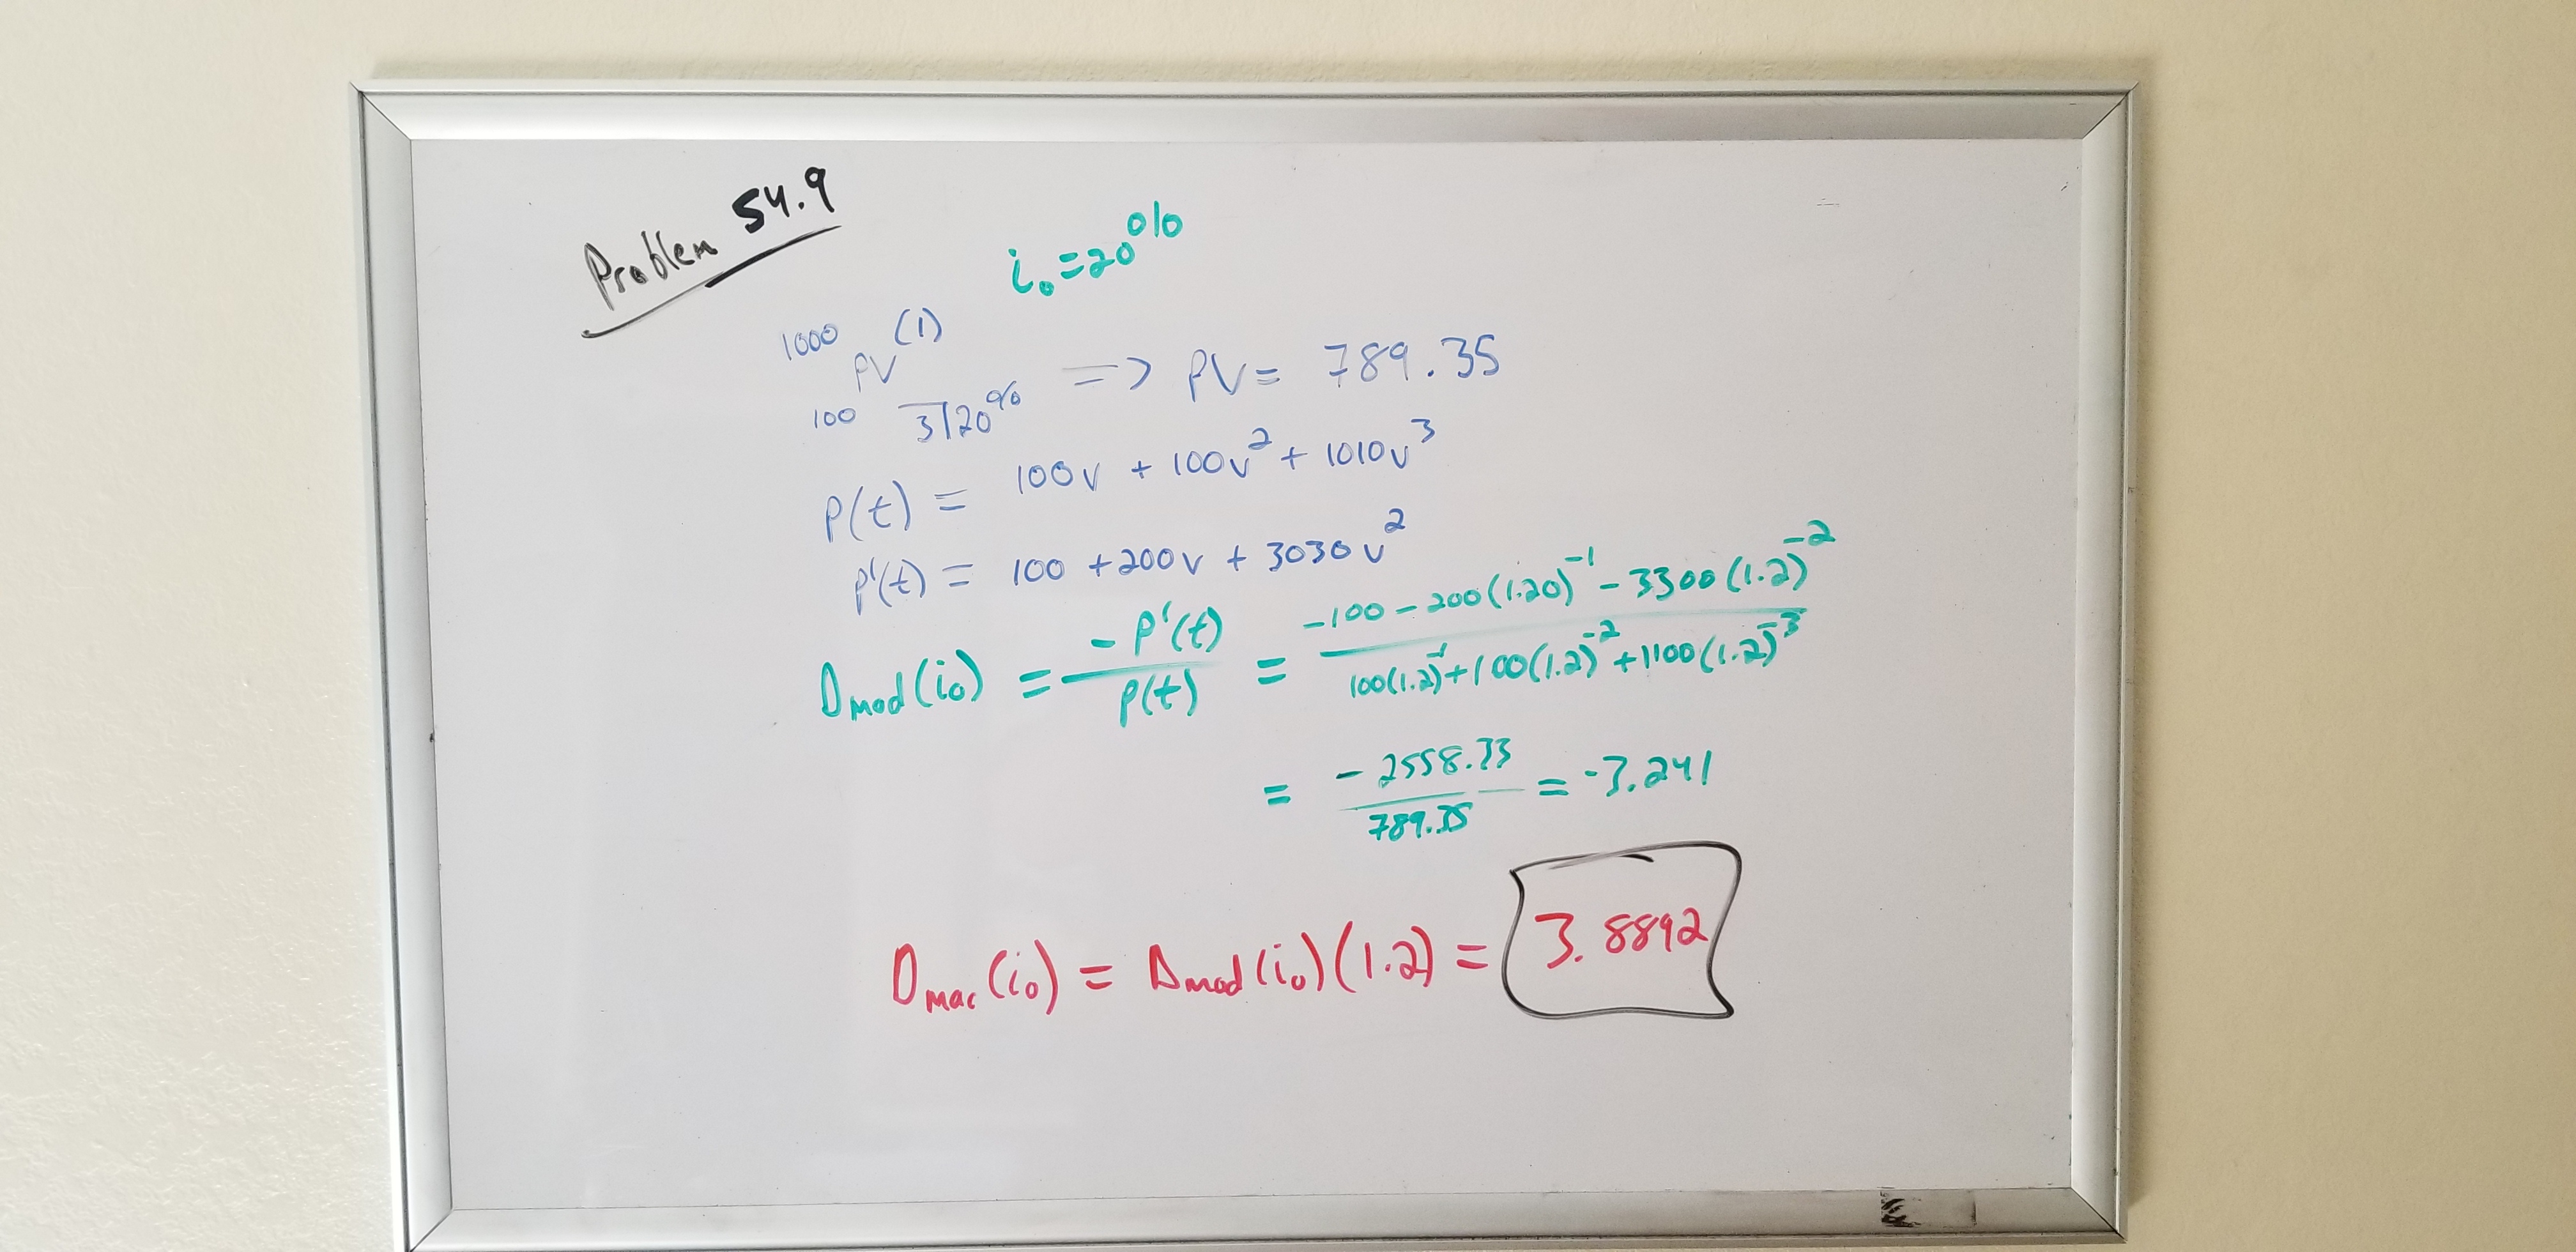 Problem 54.9
i₀ = 20%
1000 (1)
PV => PV = 789.35
100 3|20%
P(t) = 100v + 100v² + 1010v³
P'(t) = 100 + 200v + 3030v²
Dmod(i₀) = -P'(t)/P(t) = -100 - 200(1.20)⁻¹ - 3300(1.2)⁻² / 100(1.2)⁻¹ + 100(1.2)⁻² + 1100(1.2)⁻³
= -2558.33/789.35 = -3.241
Dmac(i₀) = Dmod(i₀)(1.2) = 3.8892